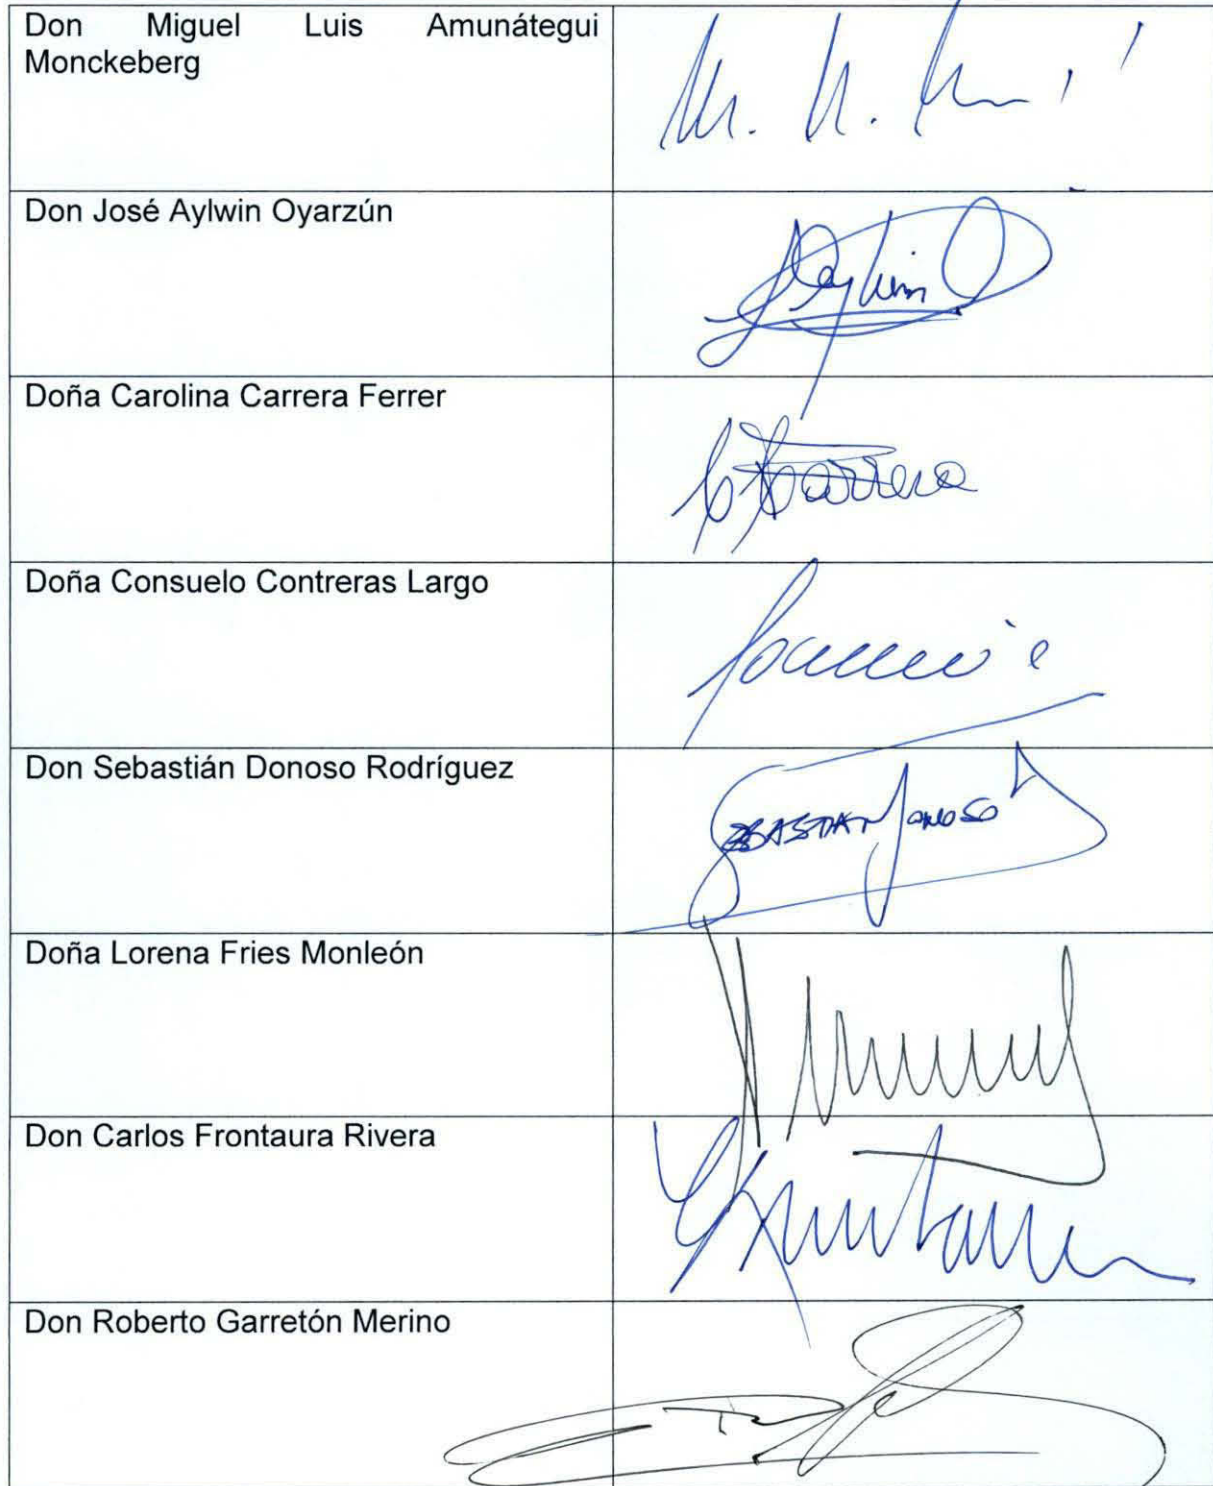 Don Miguel Luis Amunátegui
Monckeberg
Don José Aylwin Oyarzún
Aylwin
Doña Carolina Carrera Ferrer
CCarrera
Doña Consuelo Contreras Largo
Don Sebastián Donoso Rodríguez
SEBASTIAN DONOSO
Doña Lorena Fries Monleón
Don Carlos Frontaura Rivera
Don Roberto Garretón Merino